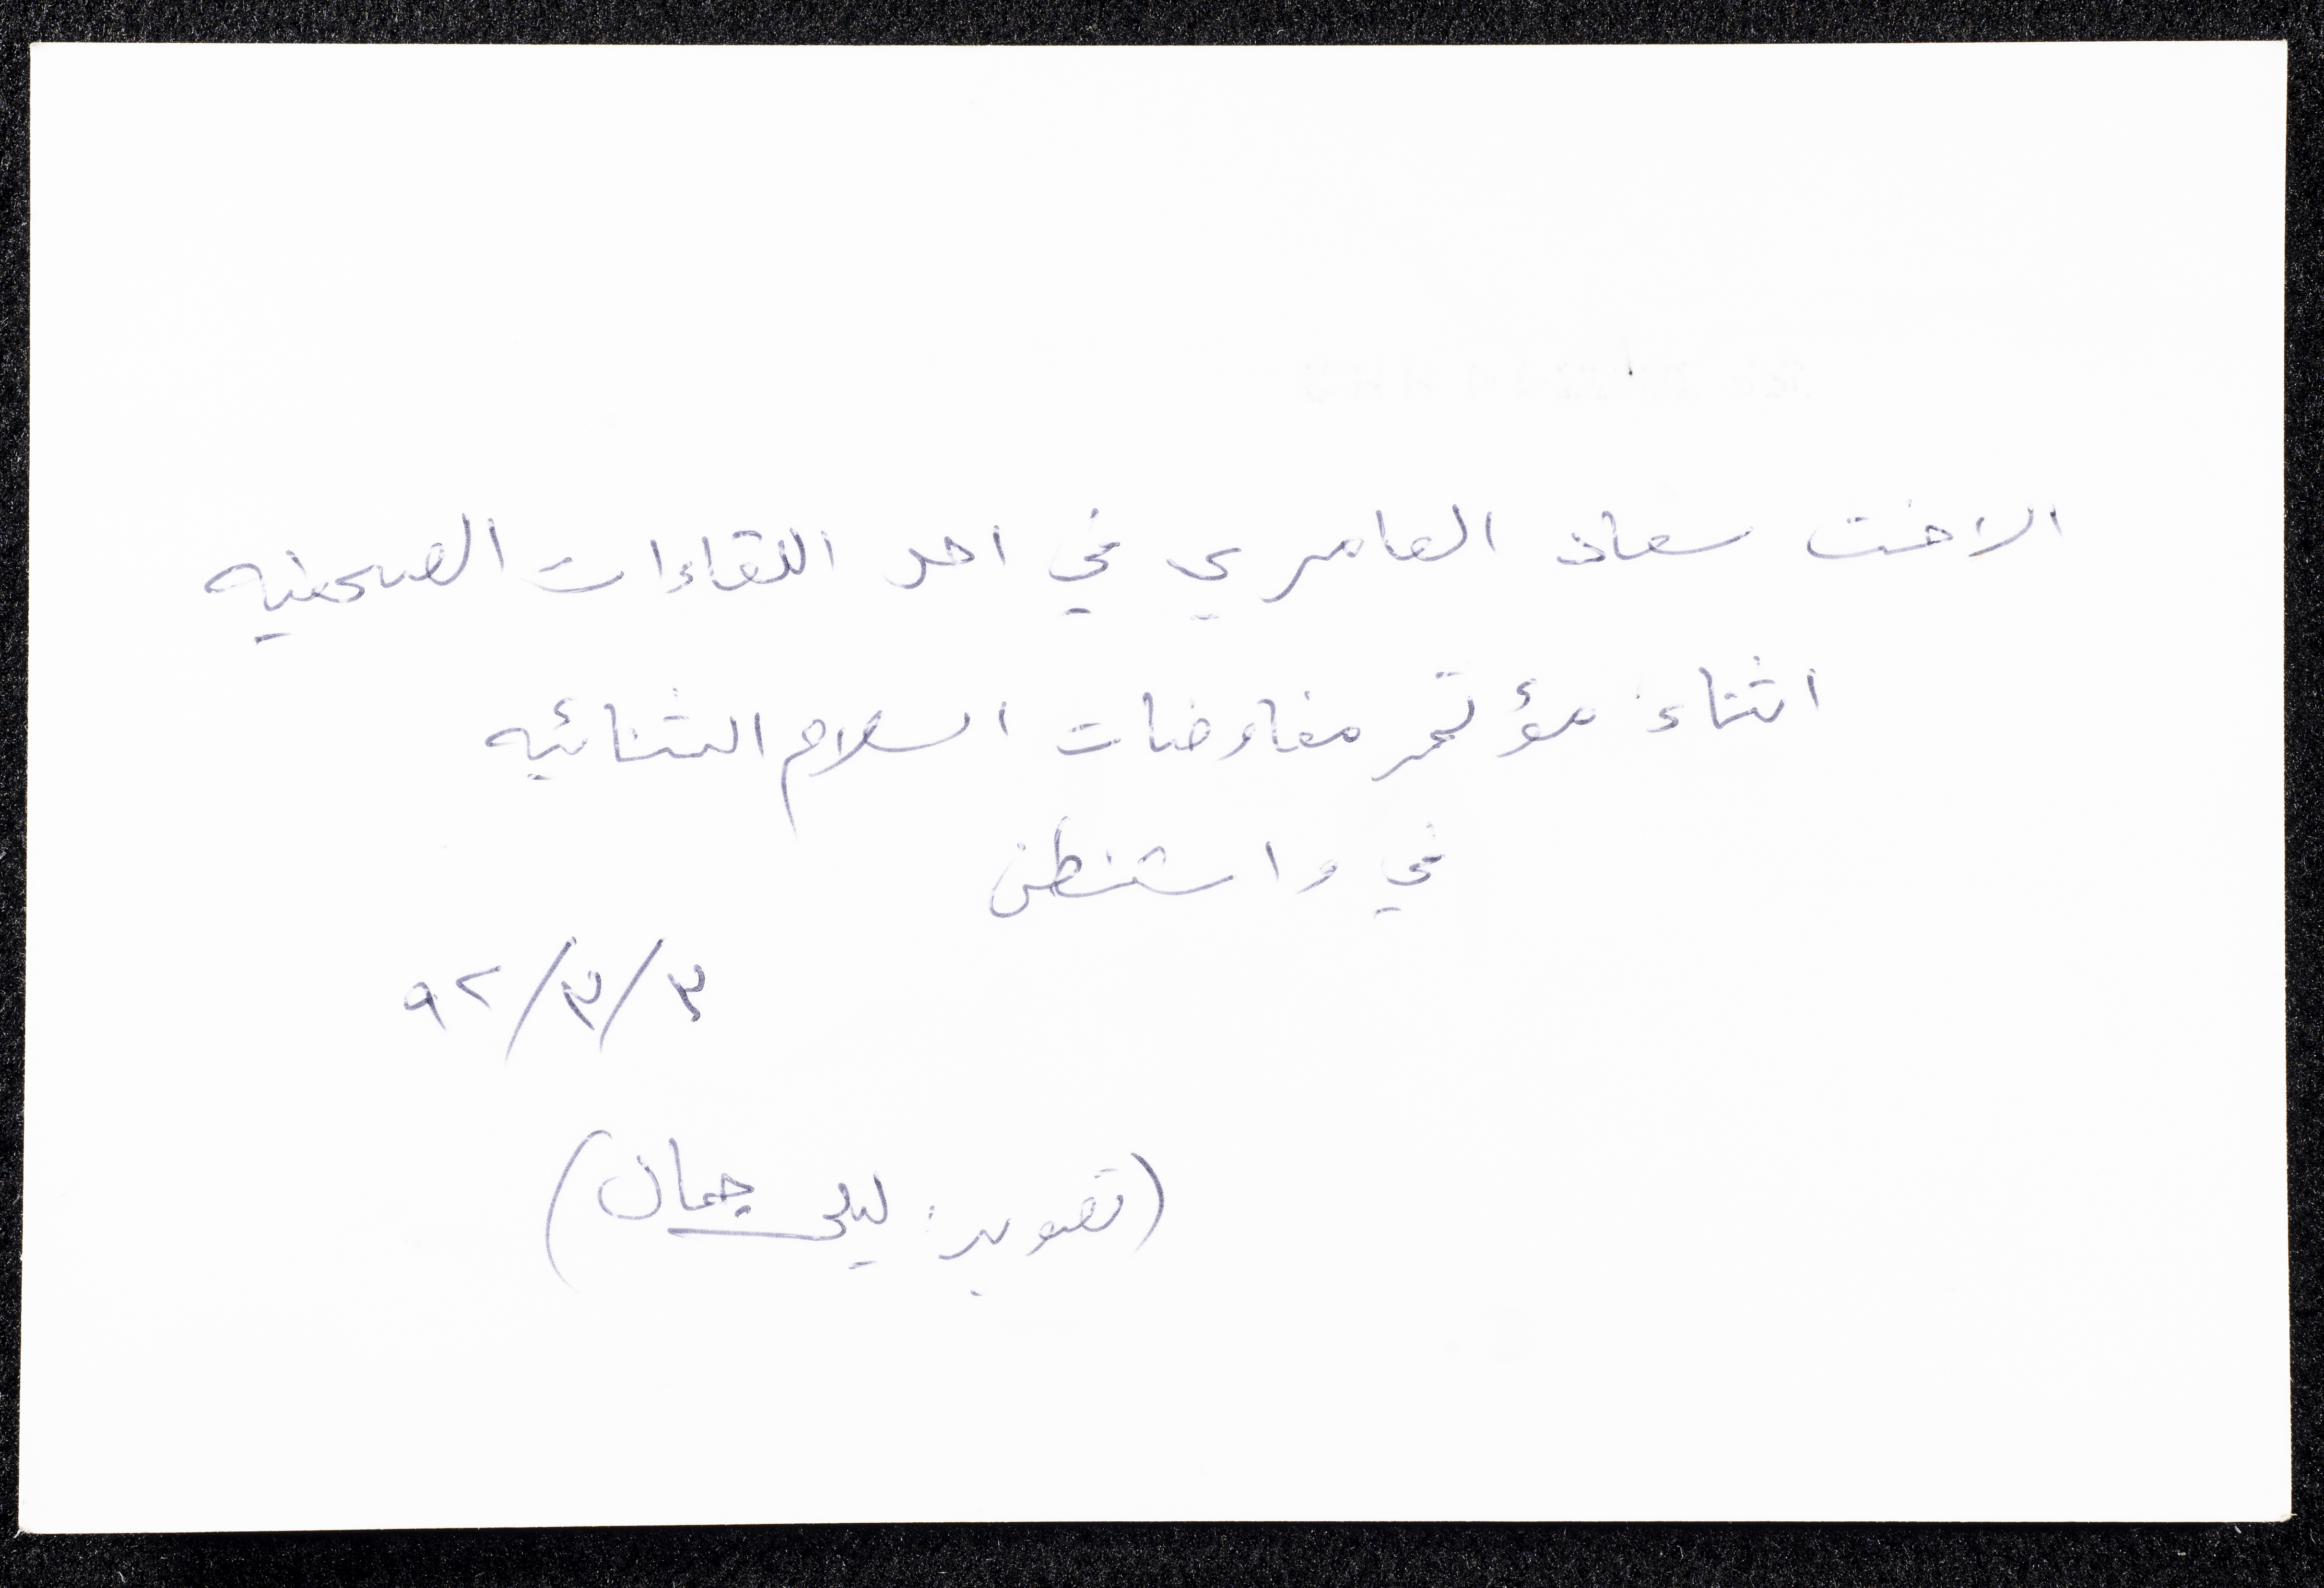 الاخت سعاد العامري في احد اللقاءات الصحفيه
اثناء مؤتمر مفاوضات السلام الثنائيه
في واشنطن
٣/٣/٩٢
(تصوير: ليلى جمال)